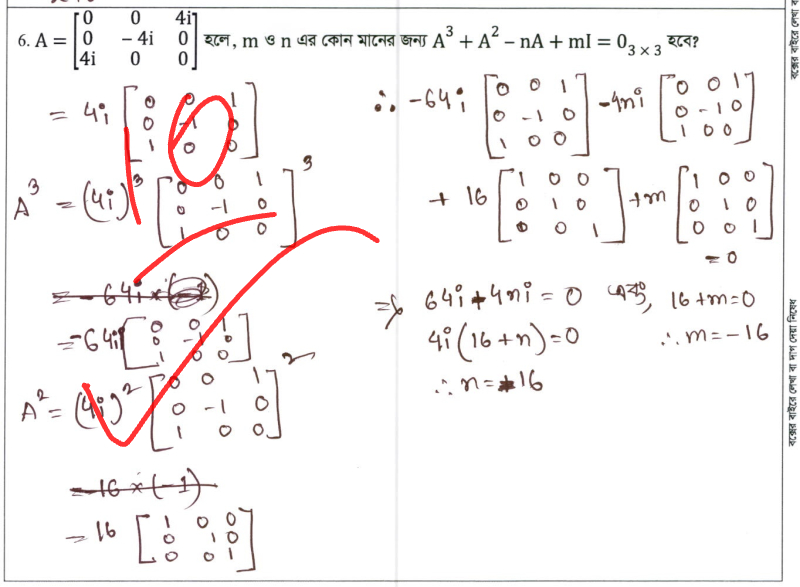 6. A = [0 0 4i; 0 - 4i 0; 4i 0 0] হলে, m ও n এর কোন মানের জন্য A³ + A² − nA + mI = 0₃ₓ₃ হবে?
= 4i [0 0 1; 0 -1 0; 1 0 0]
A³ = (4i)³ [0 0 1; 0 -1 0; 1 0 0]³
= -64i [0 0 1; 0 -1 0; 1 0 0]
A² = (4i)² [0 0 1; 0 -1 0; 1 0 0]²
= 16 × (-1)
= 16 [1 0 0; 0 1 0; 0 0 1]
∴ -64i [0 0 1; 0 -1 0; 1 0 0] -4ni [0 0 1; 0 -1 0; 1 0 0]
+ 16 [1 0 0; 0 1 0; 0 0 1] + m [1 0 0; 0 1 0; 0 0 1]
= 0
⇒ 64i + 4ni = 0 এবং, 16 + m = 0
4i (16 + n) = 0 ∴ m = -16
∴ n = 16
বক্সের বাইরে লেখা বা দাগ দেয়া নিষেধ